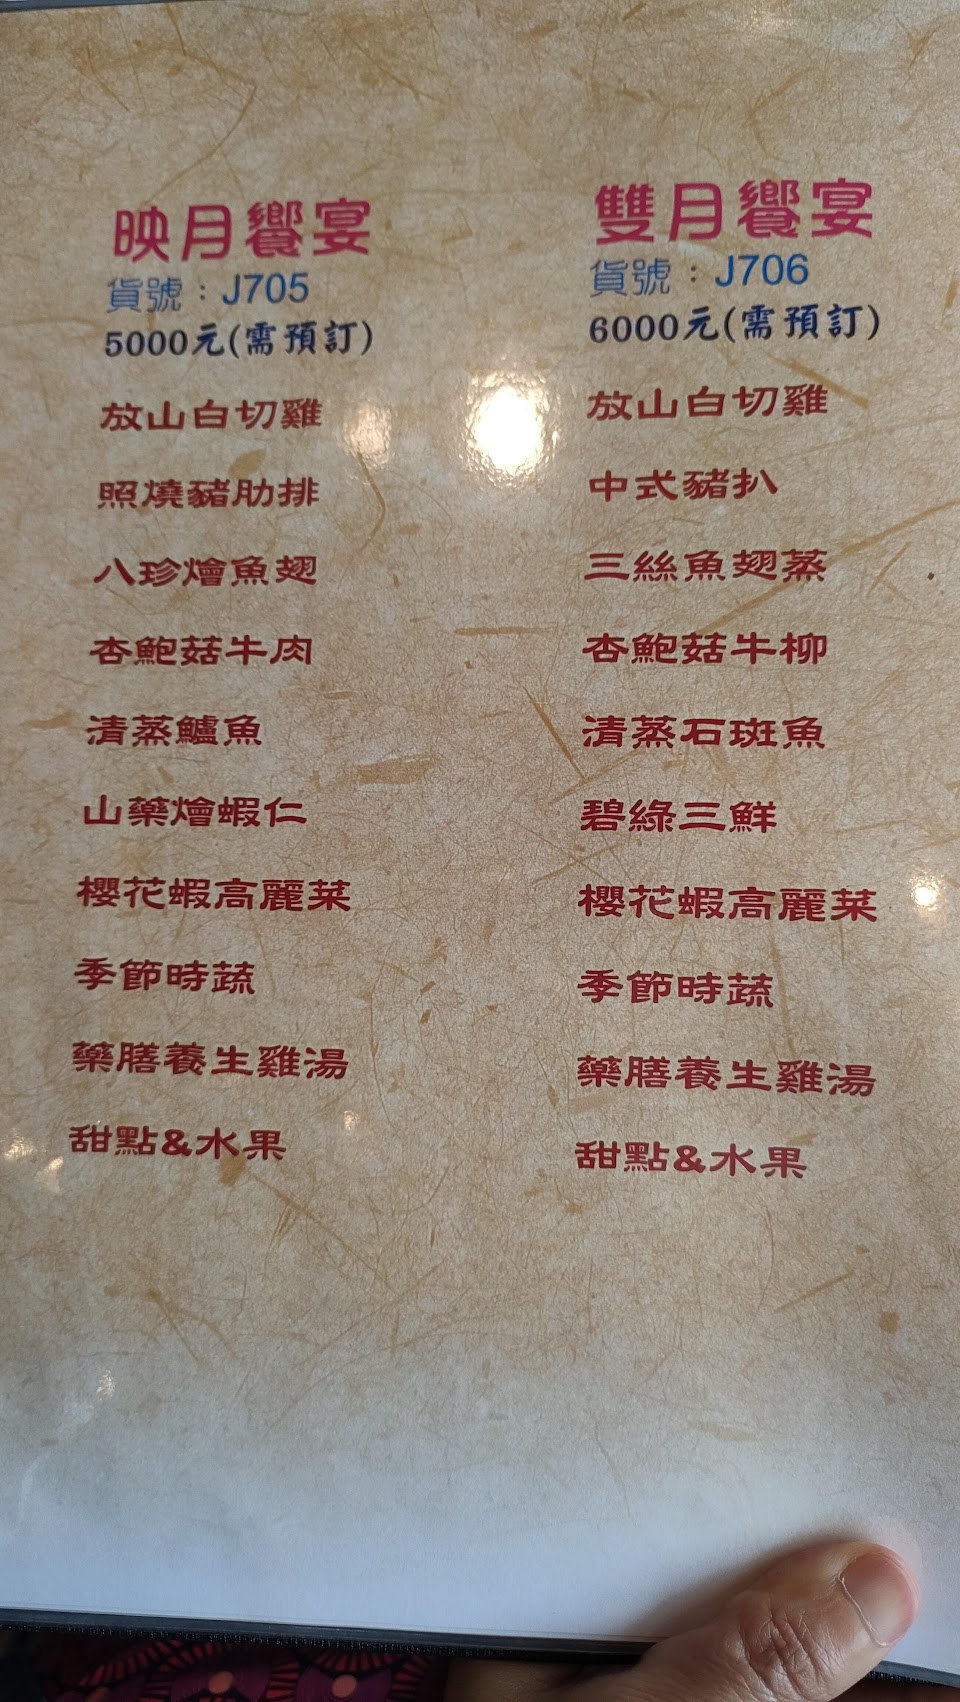 映月饗宴
貨號：J705
5000元(需預訂)
放山白切雞
照燒豬肋排
八珍燴魚翅
杏鮑菇牛肉
清蒸鱸魚
山藥燴蝦仁
櫻花蝦高麗菜
季節時蔬
藥膳養生雞湯
甜點&水果
雙月饗宴
貨號：J706
6000元(需預訂)
放山白切雞
中式豬扒
三絲魚翅蒸
杏鮑菇牛柳
清蒸石斑魚
碧綠三鮮
櫻花蝦高麗菜
季節時蔬
藥膳養生雞湯
甜點&水果